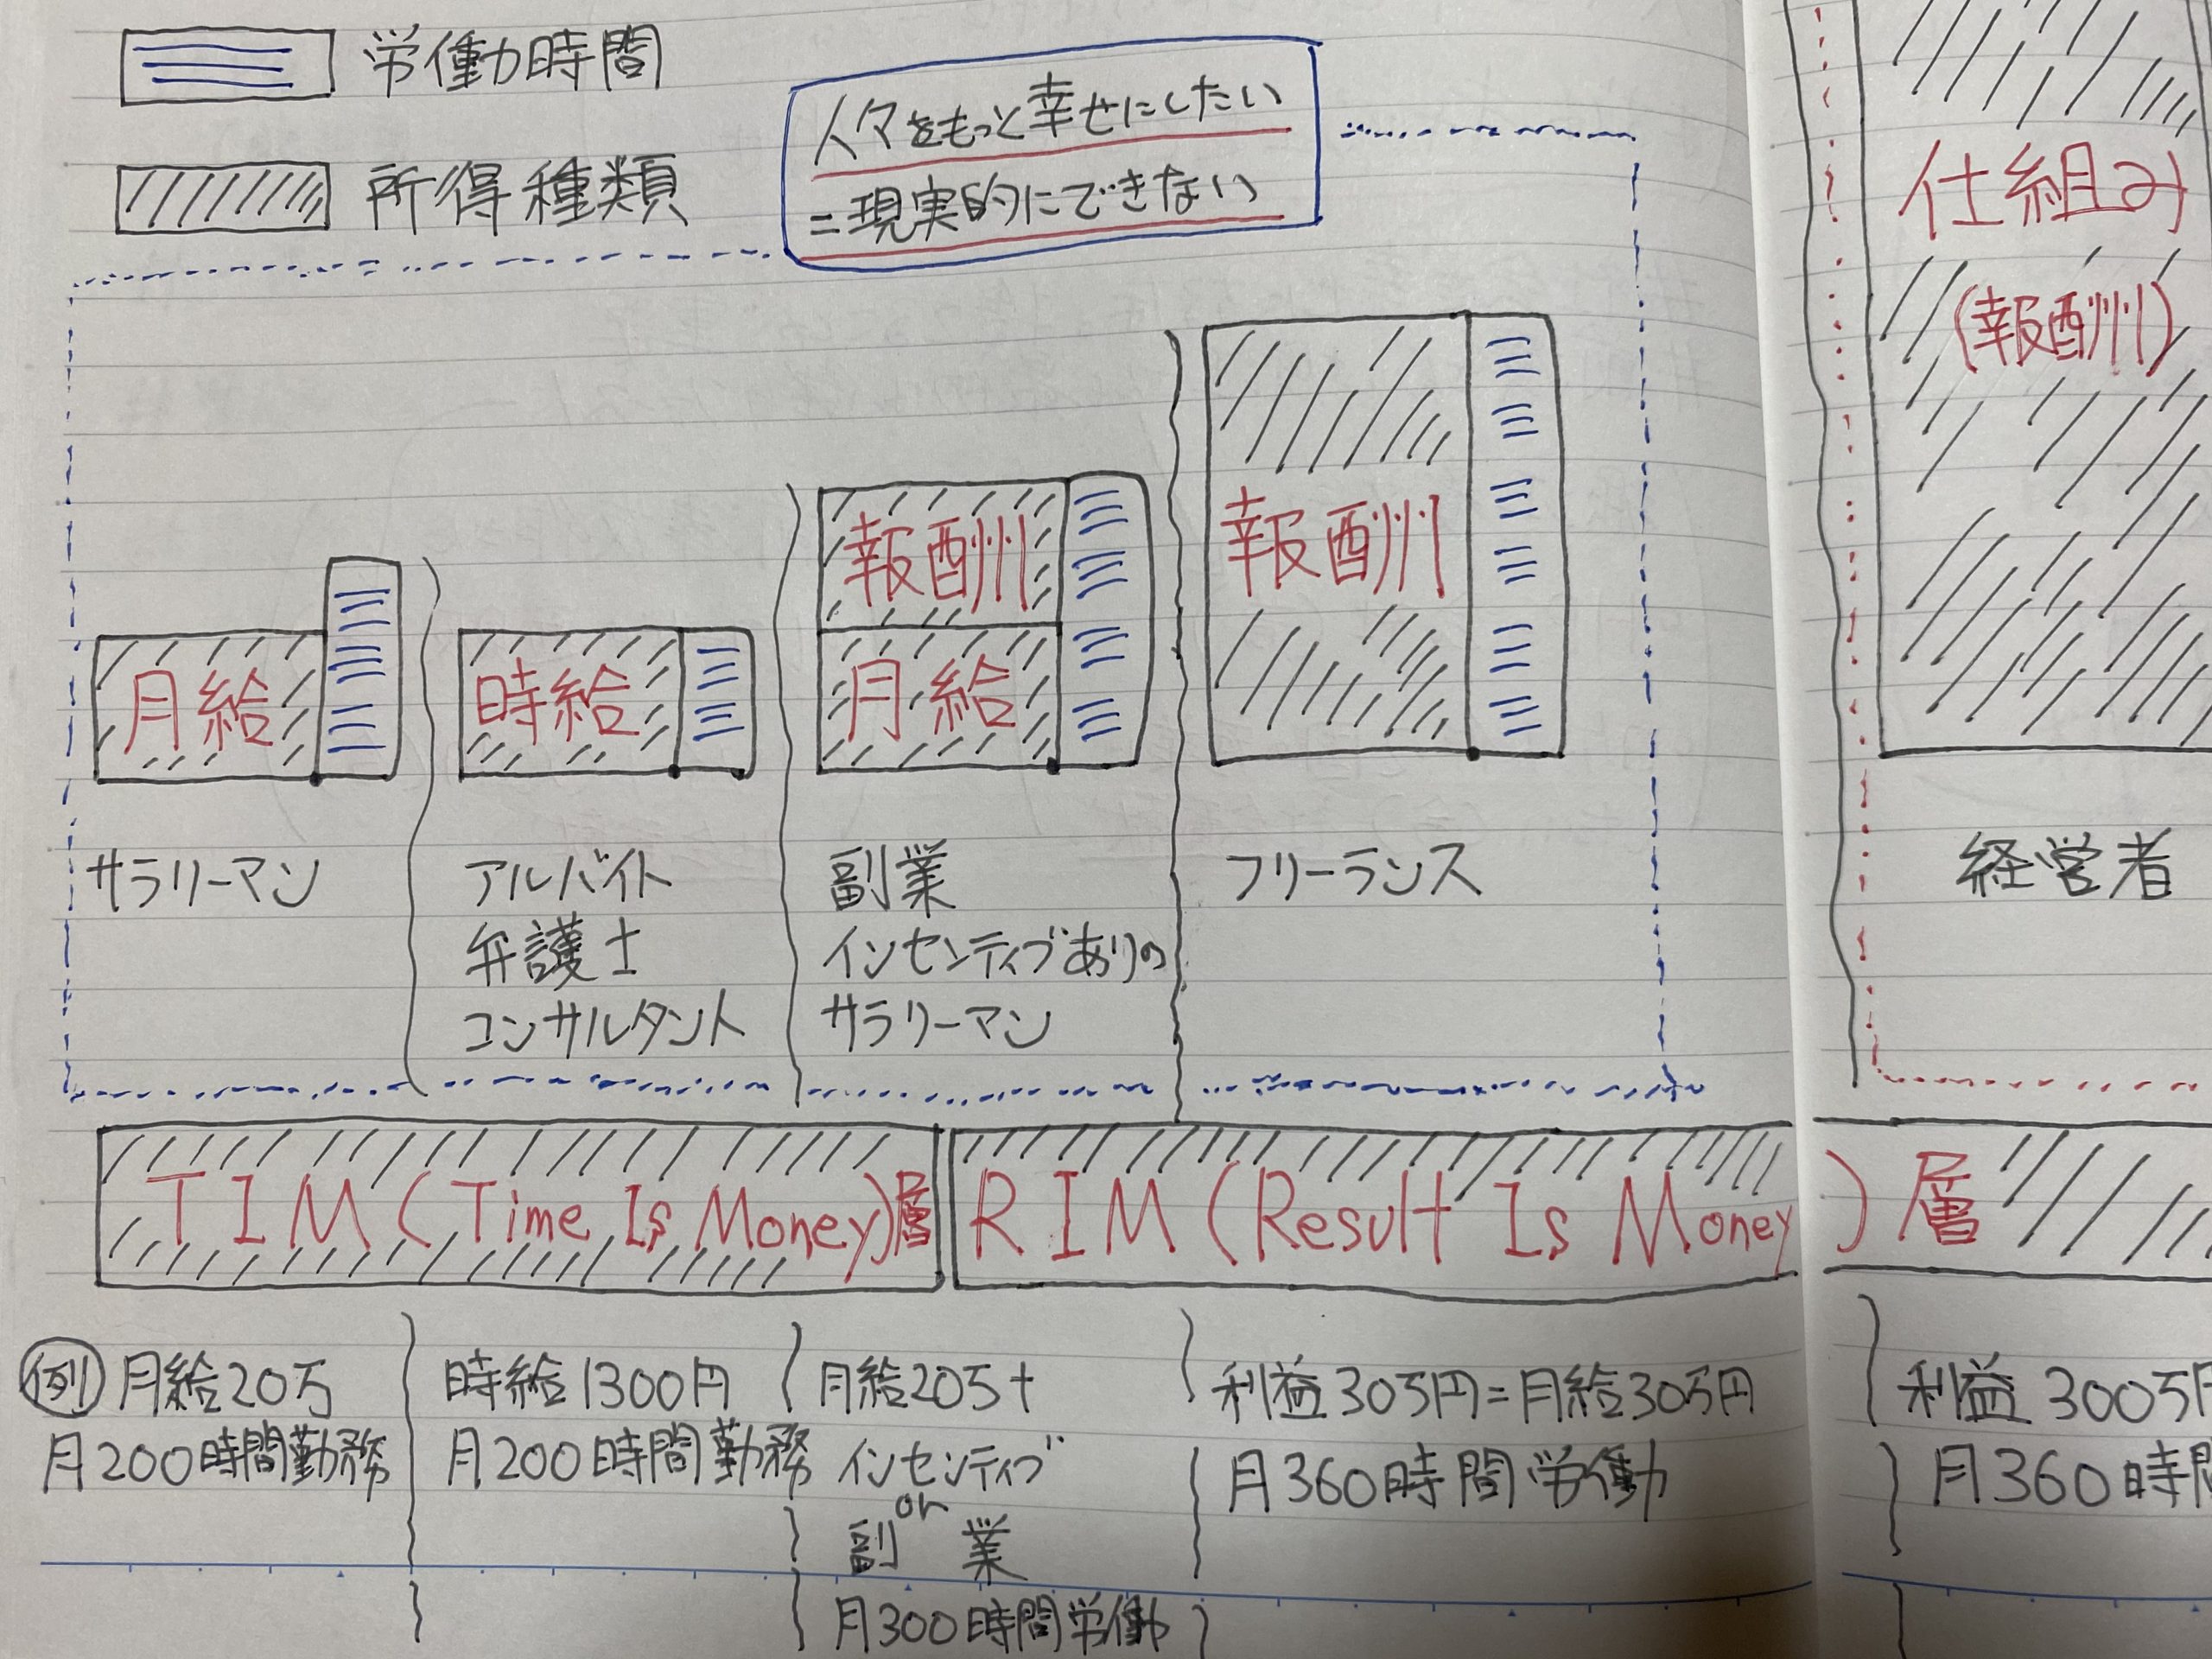 労働時間
所得種類
人々をもっと幸せにしたい
=現実的にできない
仕組み
(報酬)
月給
時給
報酬
月給
報酬
サラリーマン
アルバイト
弁護士
コンサルタント
副業
インセンティブありの
サラリーマン
フリーランス
経営者
TIM(Time Is Money)層
RIM(Result Is Money)層
例 月給20万
月200時間勤務
時給1300円
月200時間勤務
月給20万+
インセンティブ
or
副業
月300時間労働
利益30万円=月給30万円
月360時間労働
利益300万円
月360時間